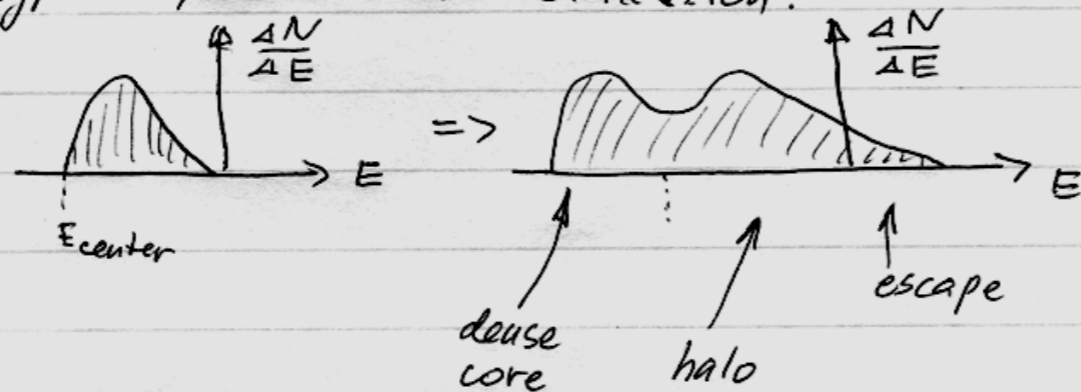 ΔN
ΔE
E
E center
=>
ΔN
ΔE
E
dense
core
halo
escape